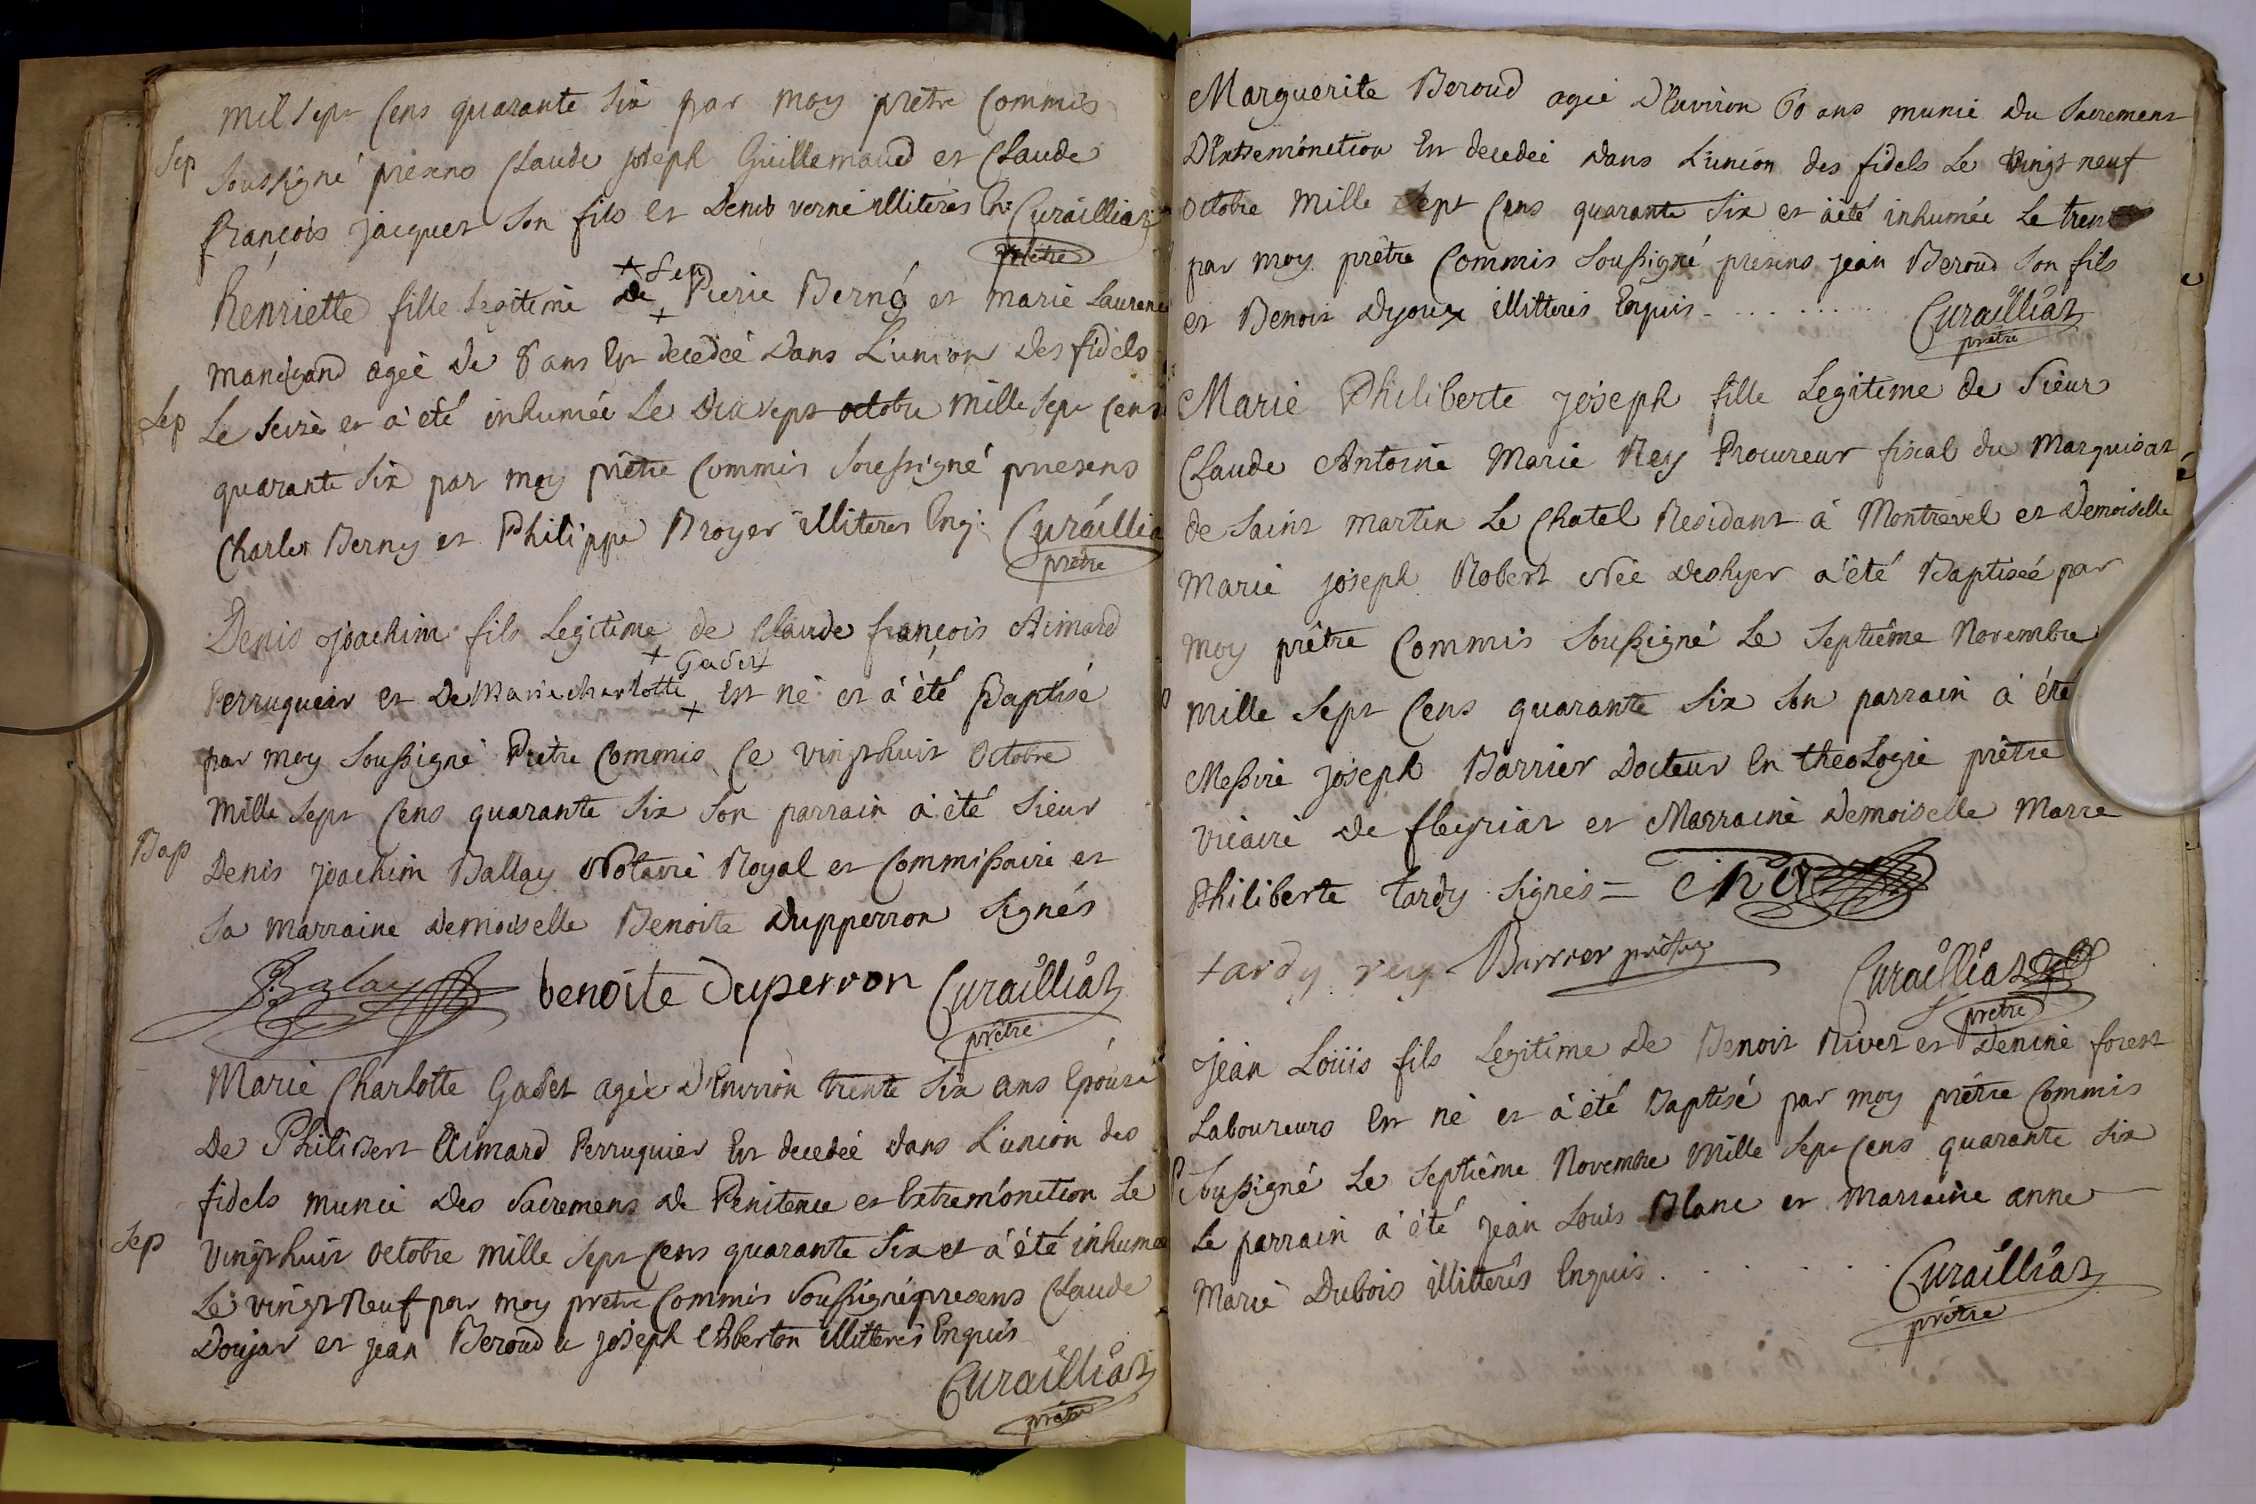 mil sept Cens quarante Six par moy prêtre Commis
Sep
Soussigné présens Claude joseph Guillemaud et Claude
françois jacquet Son fils et Denis verne illiterés Enq. Curailliat
prêtre
+ feu
henriette fille Legitime de + Pierre Berné et marie Laurence
manigand ageé de 8 ans Est decedeé Dans L'union Des fidels
Sep
Le Seize et à été inhumée Le Dix sept octobre mille Sept Cens
quarante Six par moy prêtre Commis Soussigné presens
Charles Berny et Philippe Broyer illiteres Enq. Curaillia
prêtre
Denis Joachim fils Legitime de Claude françois Aimard
+ Gadet
Perruquier et De Marie charlotte + Est né et à été Baptisé
par moy Soussigné Prêtre Commis Ce vingt huit Octobre
mille Sept Cens quarante Six Son parrain à été Sieur
Bap
Denis Joachim Ballay Notaire Royal et Commissaire et
Sa marraine Demoiselle Benoite Dupperron Signés
Balay benoite Duperron Curailliat
prêtre
Marie Charlotte Gadet ageé D'Environ trente Six ans Epouse
De Philibert Aimard Perruquier Est decedeé dans L'union des
fidels munie Des Sacremens de Penitence et Extremónction Le
Sep
vingt huit octobre mille Sept Cens quarante Six et à été inhumeé
Le vingt Neuf par moy prêtre Commis Soussigné presens Claude
Doujat et jean Beroud et joseph Aberton illiterés Enquis
Curailliat
prêtre
Marguerite Beroud ageé D'Environ 60 ans munie du Sacrement
D'Extremónction Est decedeé dans L'union des fidels Le vingt neuf
Octobre mille Sept Cens quarante Six et àété inhumée Le trente
par moy prêtre Commis Soussigné presens jean Beroud Son fils
et Benoit Dyoux illitterés Enquis . . . . . . . . Curailliat
prêtre
Marie Philiberte joseph fille Legitime de Sieur
Claude Antoine Marie Rey Procureur fiscal du Marquisat
de Saint martin Le Chatel Residant à Montrevel et Demoiselle
Marie joseph Robert Née deshyer a été Baptiseé par
moy prêtre Commis Soussigné Le Septiême Novembre
mille Sept Cens quarante Six Son parrain à été
Messire joseph Barrier Docteur En theoLogie prêtre
vicaire de fleyriat et Marraine Demoiselle Marie
Philiberte tardy Signés =
tardy rey Barrier prêtre Curailliat
prêtre
jean Loüis fils Legitime De Benoit Rivet et Denine forest
Laboureurs Est né et à été Baptisé par moy prêtre Commis
Soussigné Le Septiême Novembre Mille Sept Cens quarante Six
Le parrain à été jean Louis Blanc et marraine anne
Marie Dubois illitterés Enquis . . . . . . Curailliat
prêtre